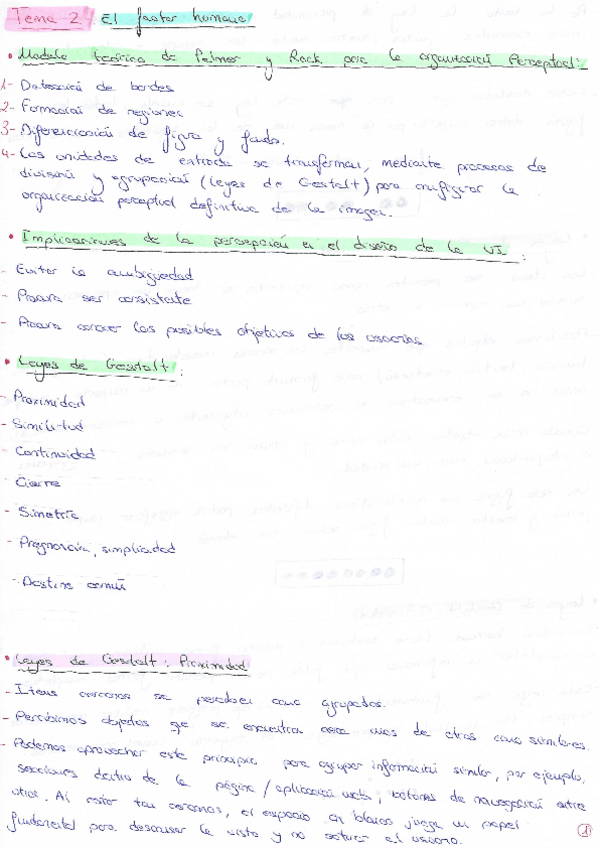 Tema-2. El factor humano
• Modelo teórico de Palmer y Rock para la organización Perceptual:
1- Detección de bordes
2- Formación de regiones
3- Diferenciación de figura y fondo.
4- Las unidades de entrada se transforman, mediante procesos de
división y agrupación (leyes de Gestalt) para configurar la
organización perceptual definitiva de la imagen.
• Implicaciones de la percepción en el diseño de la UI:
- Evitar la ambigüedad
- Procura ser consistente
- Procura conocer los posibles objetivos de los usuarios.
• Leyes de Gestalt:
- Proximidad
- Similitud
- Continuidad
- Cierre
- Simetría
- Pregnancia, simplicidad
- Destino común
• Leyes de Gestalt: Proximidad
- Items cercanos se perciben como agrupados.
- Percibimos objetos que se encuentran cerca unos de otros como similares.
- Podemos aprovechar este principio para agrupar información similar, por ejemplo,
secciones dentro de la página/aplicación web, botones de navegación entre
otros. Al estar tan cercanos, el espacio en blanco juega un papel
fundamental para descansar la vista y no saturar el usuario.
1